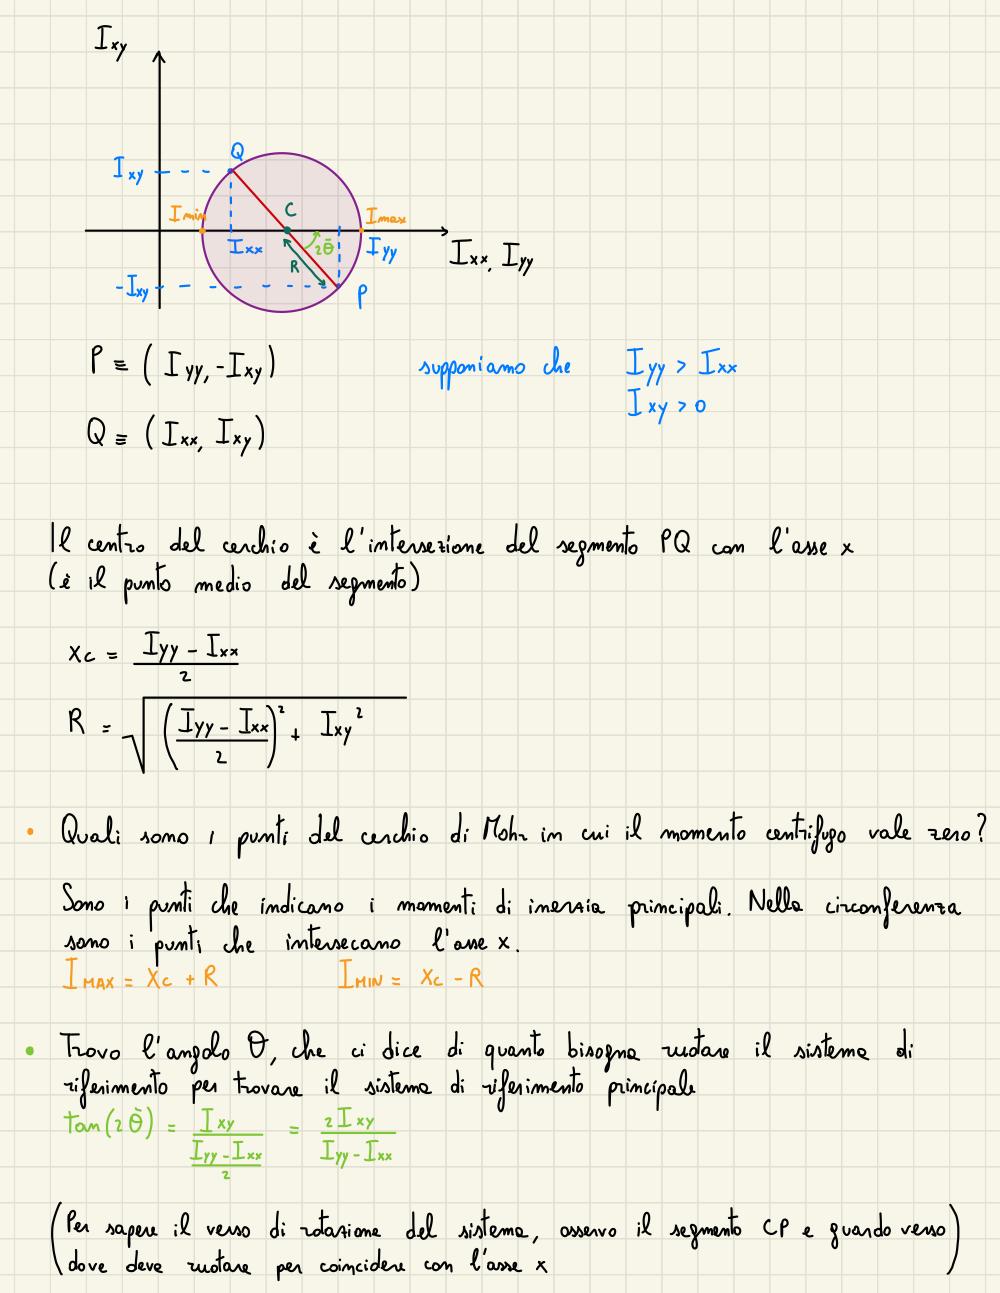 Ixy
Q
Ixy
Imin
C
Imax
Ixx
2θ̄
Iyy
Ixx, Iyy
R
-Ixy
P
P ≡ ( Iyy, -Ixy)
supponiamo che Iyy > Ixx
Ixy > 0
Q ≡ ( Ixx, Ixy)
Il centro del cerchio è l'intersezione del segmento PQ con l'asse x
(è il punto medio del segmento)
xc = (Iyy - Ixx)/2
R = √(((Iyy - Ixx)/2)² + Ixy²)
• Quali sono i punti del cerchio di Mohr in cui il momento centrifugo vale zero?
Sono i punti che indicano i momenti di inerzia principali. Nella circonferenza
sono i punti che intersecano l'asse x.
IMAX = Xc + R IMIN = Xc - R
• Trovo l'angolo θ, che ci dice di quanto bisogna ruotare il sistema di
riferimento per trovare il sistema di riferimento principale
tan(2θ̄) = Ixy/((Iyy-Ixx)/2) = 2Ixy/(Iyy-Ixx)
(Per sapere il verso di rotazione del sistema, osservo il segmento CP e guardo verso
dove deve ruotare per coincidere con l'asse x)